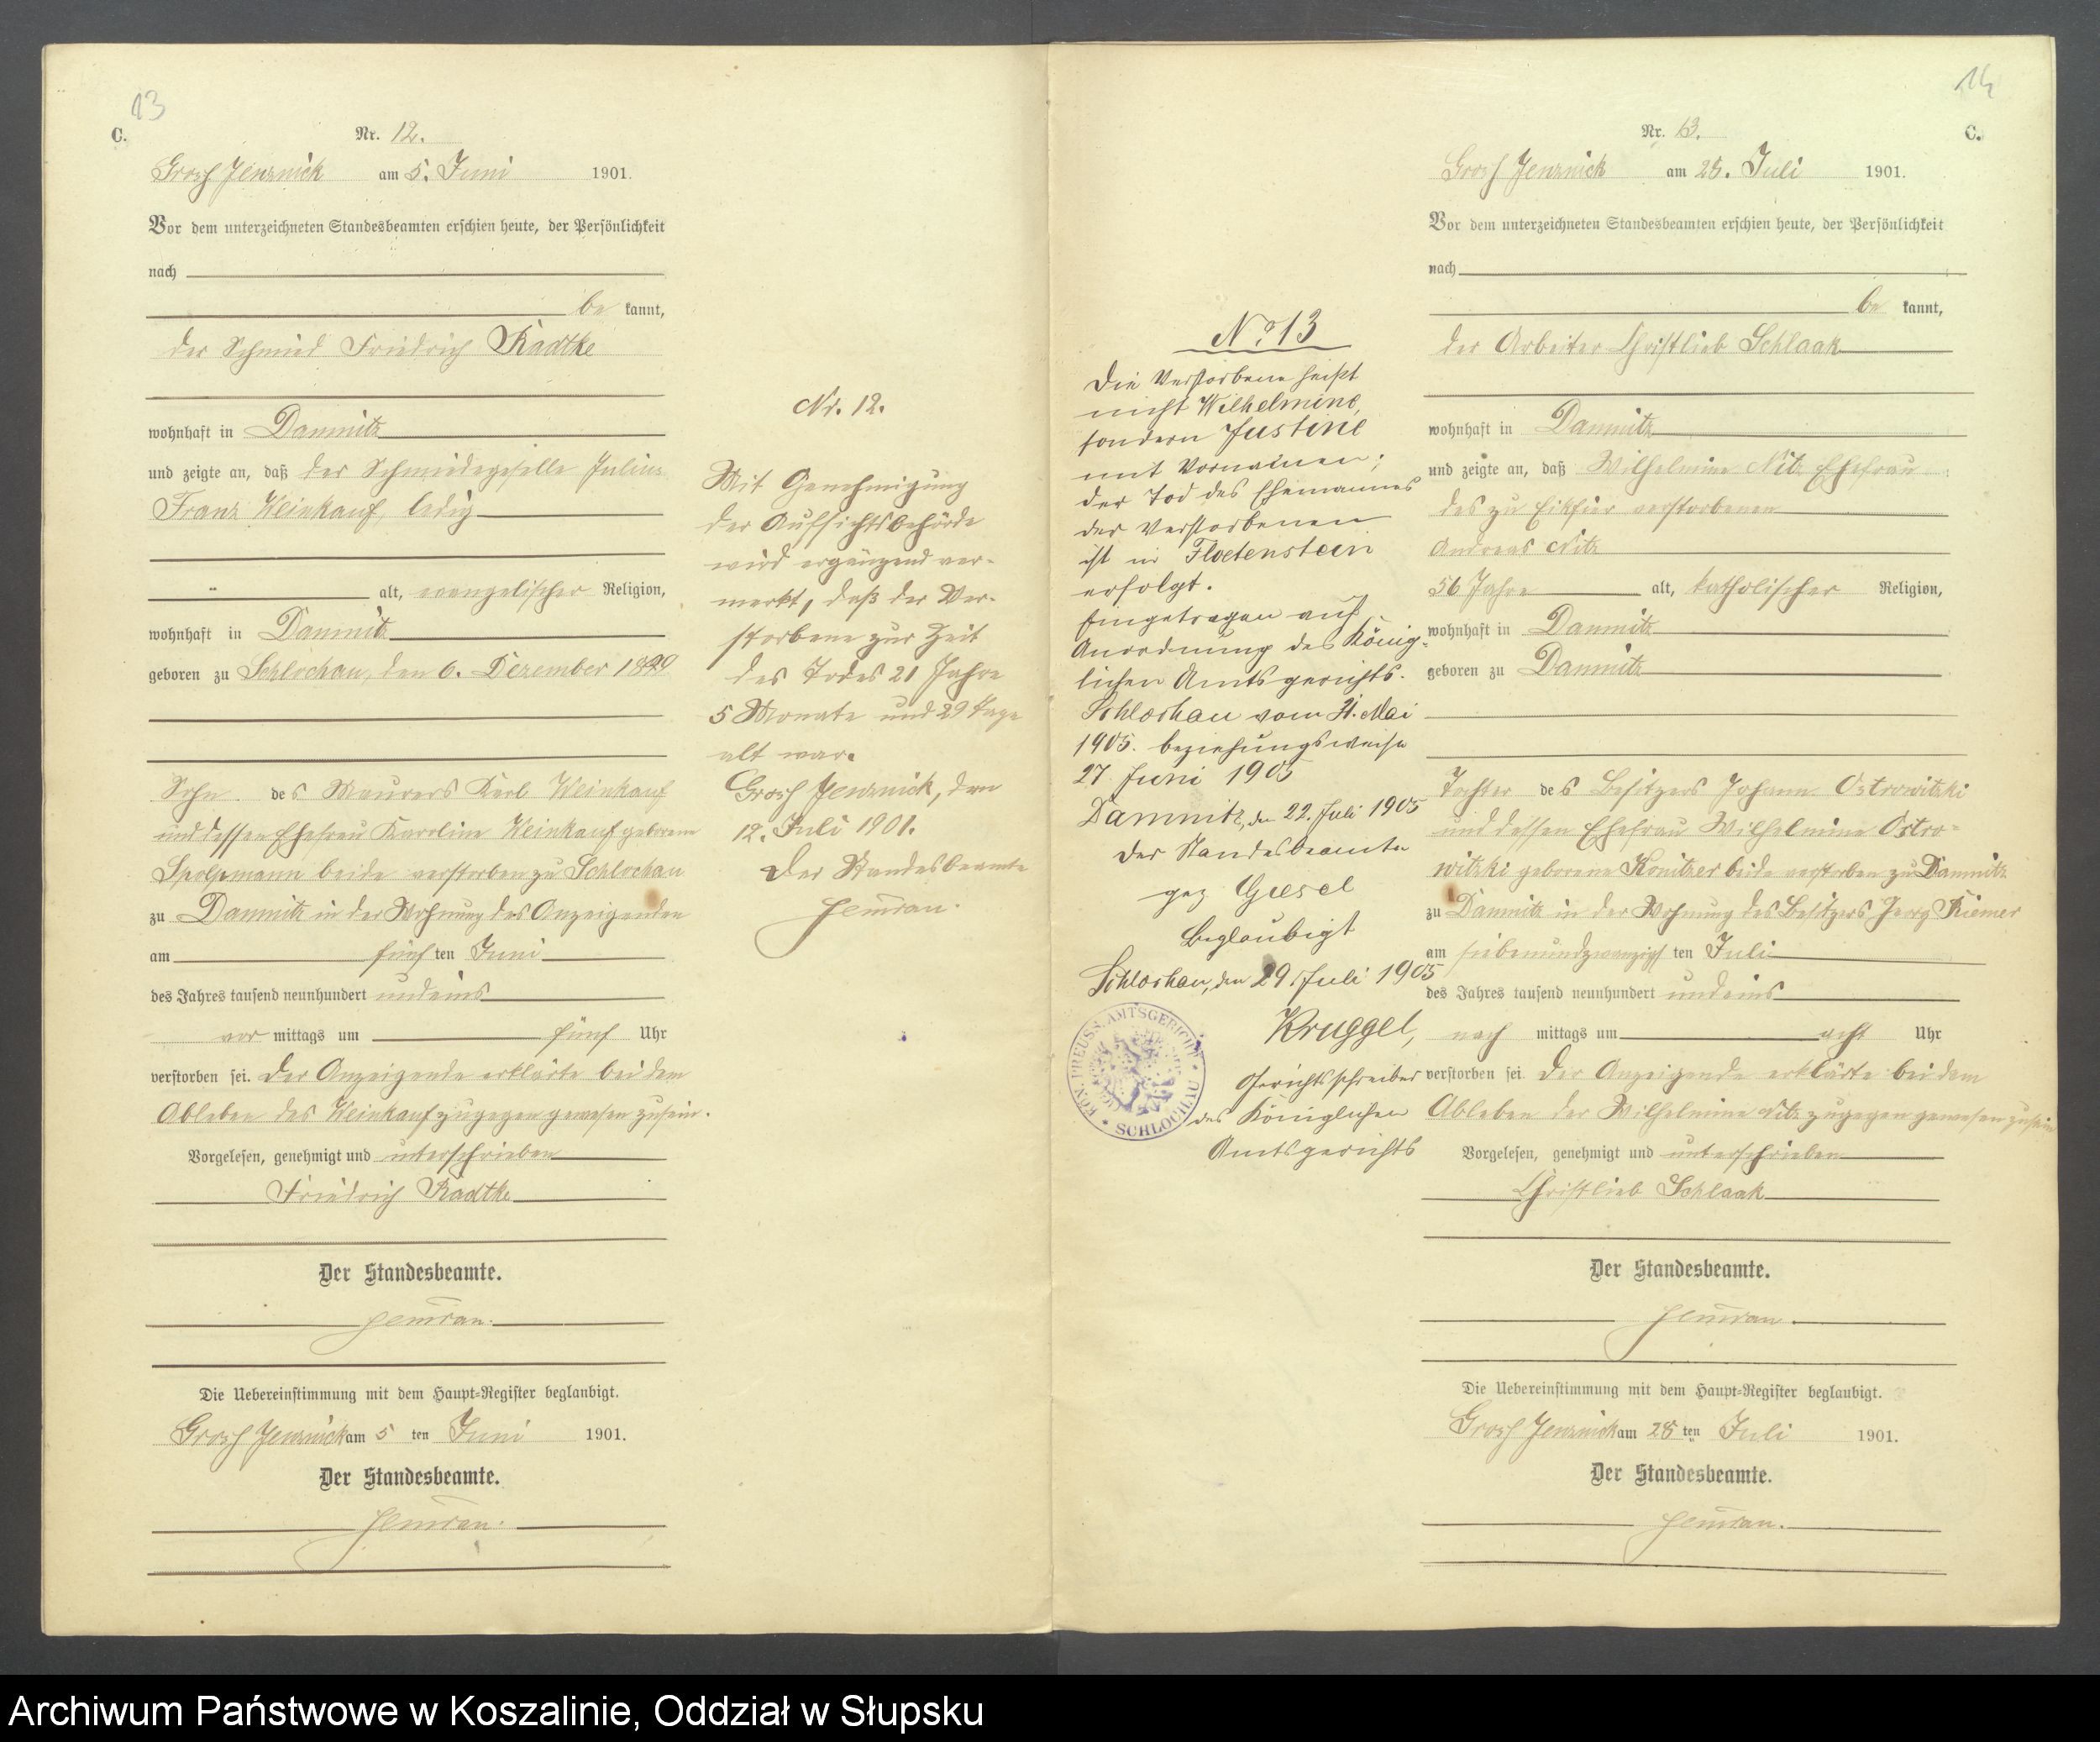 13
C.
Nr. 12.
Gross Jenznick am 5. Juni 1901.
Vor dem unterzeichneten Standesbeamten erschien heute, der Persönlichkeit
nach
be kannt,
der Schmied Friedrich Radtke
wohnhaft in Damnitz
und zeigte an, daß der Schmiedegeselle Julius
Franz Weinkauf, ledig
alt, evangelischer Religion,
wohnhaft in Damnitz
geboren zu Schlochau, den 6. Dezember
Sohn des Maurers Karl Weinkauf
und dessen Ehefrau Karoline Weinkauf geborene
beide verstorben zu Schlochau
zu Damnitz in der Wohnung des Anzeigenden
am fünf ten Juni
des Jahres tausend neunhundert undeins
vor mittags um fünf Uhr
verstorben sei. Der Anzeigende erklärte bei dem
Ableben des Weinkauf zugegen gewesen zu sein.
Vorgelesen, genehmigt und unterschrieben
Friedrich Radtke
Der Standesbeamte.
Die Uebereinstimmung mit dem Haupt-Register beglaubigt.
Gross Jenznick am 5 ten Juni 1901.
Der Standesbeamte.
Nr. 12.
Mit Genehmigung
der Aufsichtsbehörde
wird ergänzend ver-
merkt, daß der Ver-
storbene zur Zeit
des Todes 21 Jahre
5 Monate und 29 Tage
alt war.
Gross Jenznick, den
12. Juli 1901.
Der Standesbeamte
No 13
Die Verstorbene heißt
nicht Wilhelmine,
sondern Justine
mit Vornamen;
der Tod des Ehemannes
der Verstorbenen
ist in Floetenstein
erfolgt.
Eingetragen auf
Anordnung des König-
lichen Amtsgerichts.
Schlochau vom 31. Mai
1905. beziehungsweise
27. Juni 1905
Damnitz, den 22. Juli 1905
Der Standesbeamte
gez. Giesel
Beglaubigt
Schlochau, den 29 Juli 1905
Kruggel,
Gerichtsschreiber
des Königlichen
Amtsgerichts
KGN. PREUSS. AMTSGERICHT
SCHLOCHAU
14
Nr. 13.
C.
Gross Jenznick am 28. Juli 1901.
Vor dem unterzeichneten Standesbeamten erschien heute, der Persönlichkeit
nach
be kannt,
der Arbeiter Christlieb Schlaak
wohnhaft in Damnitz
und zeigte an, daß Wilhelmine Nitz Ehefrau
des zu Eikfier verstorbenen
Andreas Nitz
56 Jahre alt, katholischer Religion,
wohnhaft in Damnitz
geboren zu Damnitz
Tochter des Besitzers Johann Ostrowitzki
und dessen Ehefrau Wilhelmine Ostro-
witzki geborene Konitzer beide verstorben zu Damnitz
zu Damnitz in der Wohnung des Besitzers Georg Riemer
am siebenundzwanzigs ten Juli
des Jahres tausend neunhundert undeins
nach mittags um acht Uhr
verstorben sei. Der Anzeigende erklärte bei dem
Ableben der Wilhelmine Nitz zugegen gewesen zu sein
Vorgelesen, genehmigt und unterschrieben
Christlieb Schlaak
Der Standesbeamte.
Die Uebereinstimmung mit dem Haupt-Register beglaubigt.
Gross Jenznick am 28 ten Juli 1901.
Der Standesbeamte.
Archiwum Państwowe w Koszalinie, Oddział w Słupsku